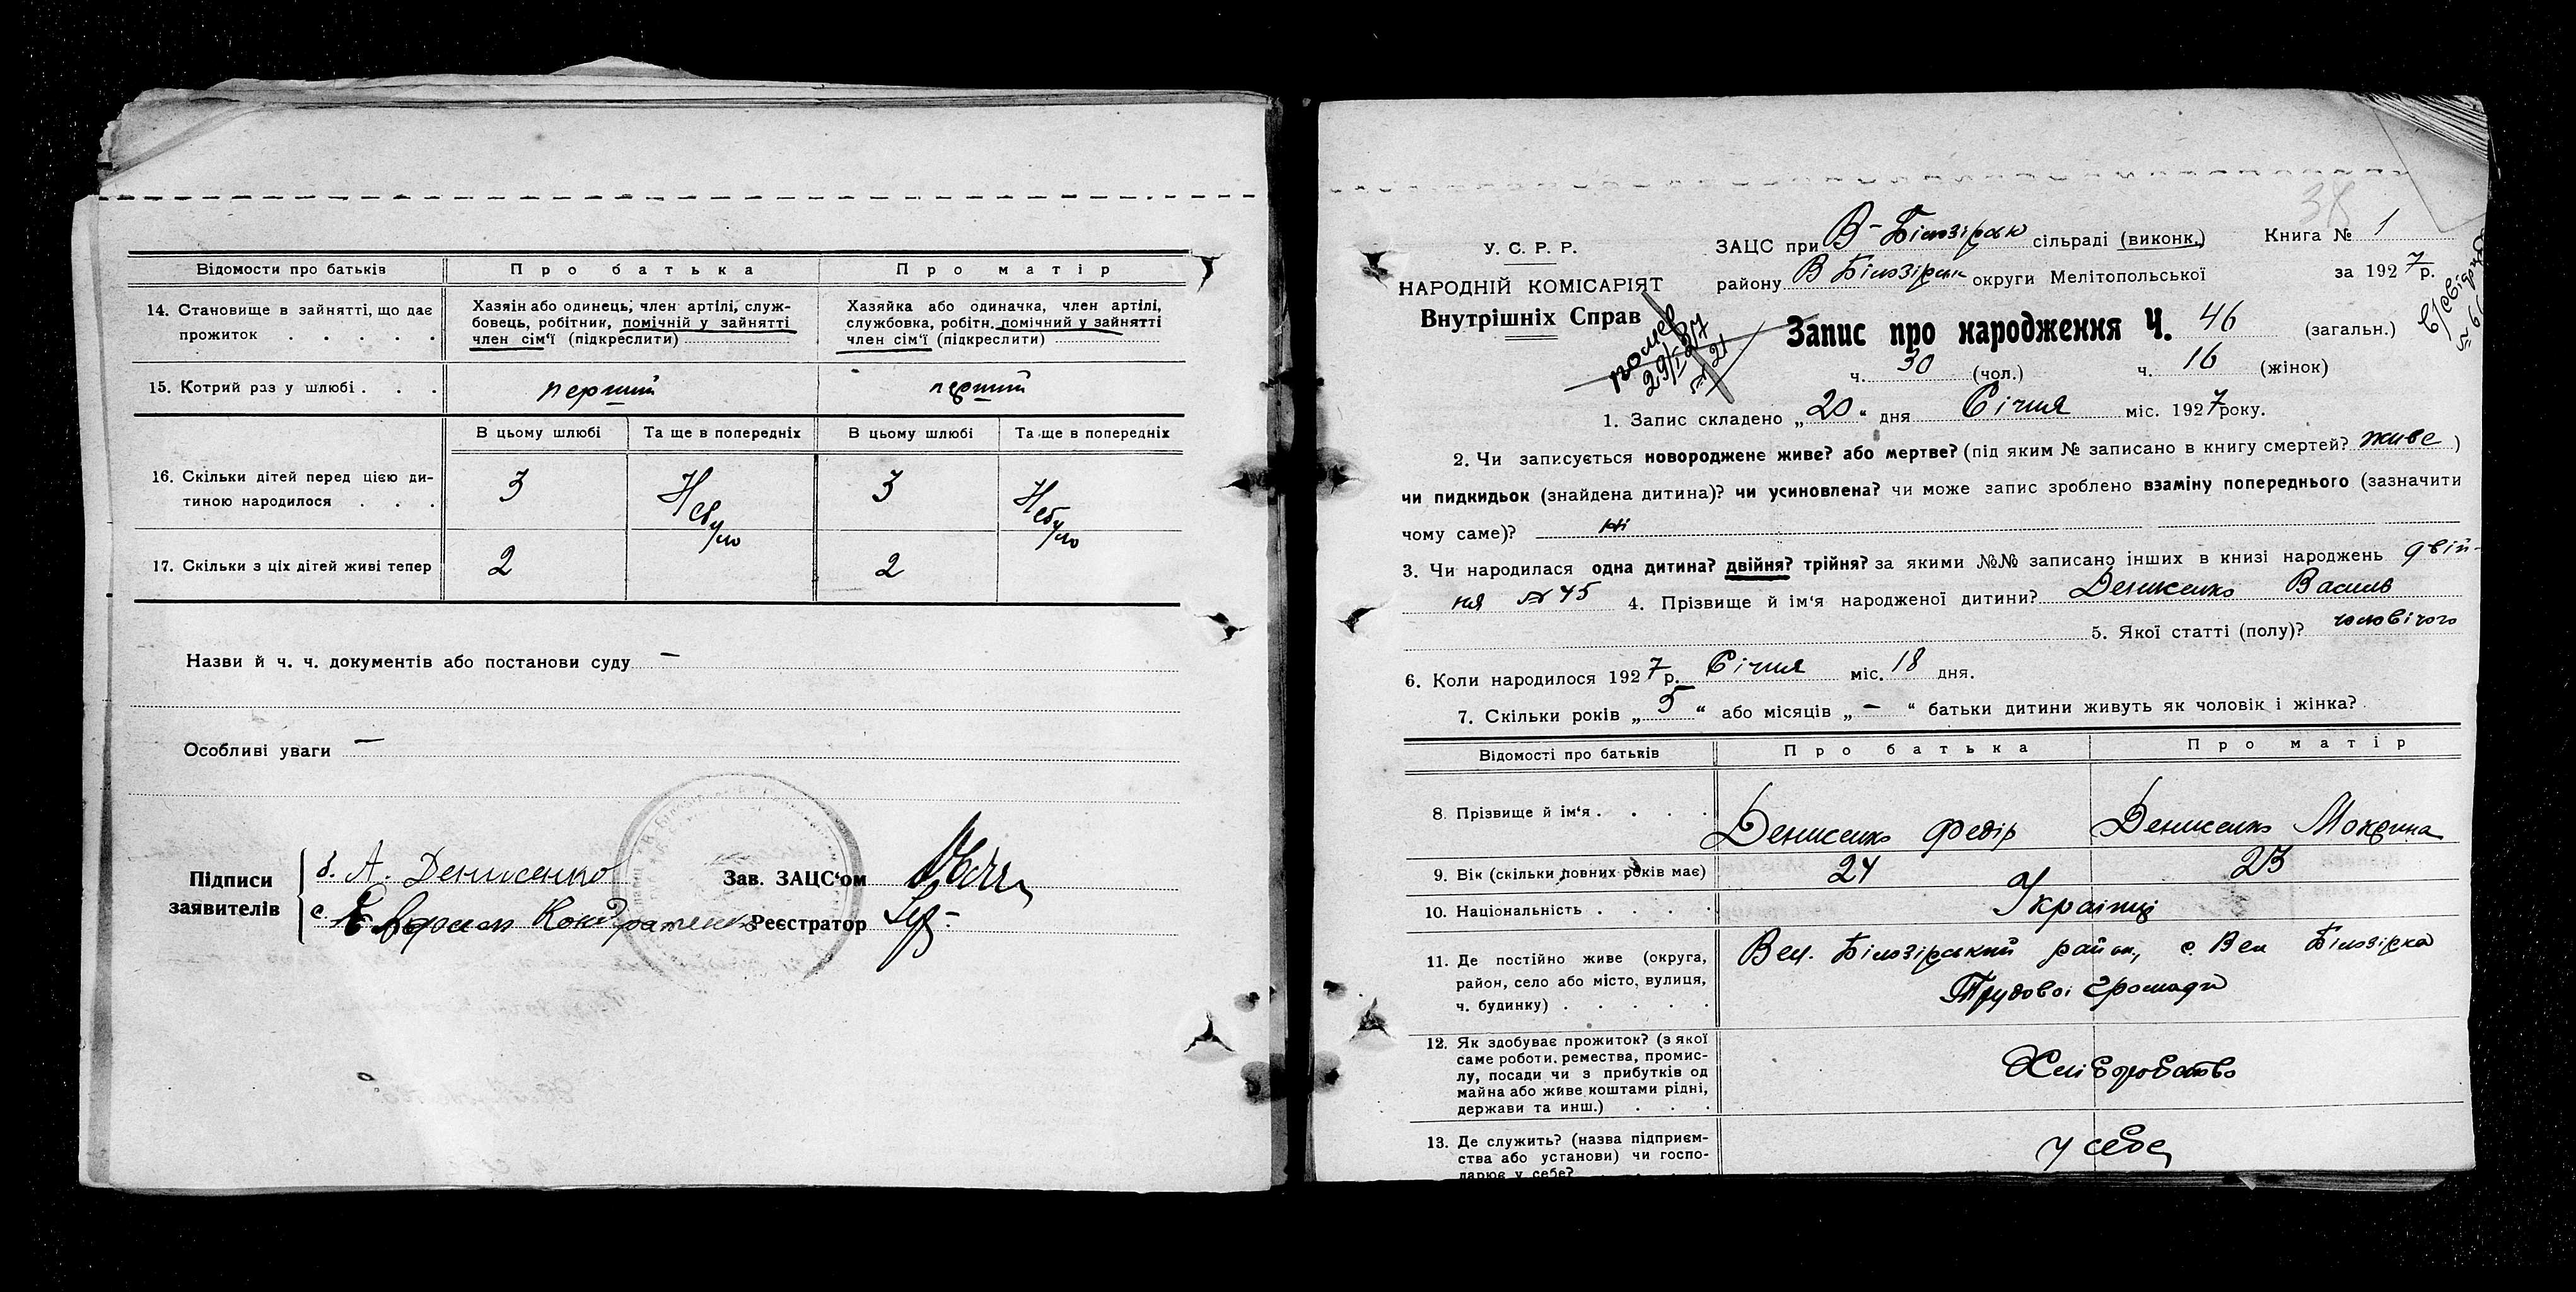 Відомости про батьків
Про батька
Про матір
14. Становище в зайнятті, що дає прожиток . . . . .
Хазяін або одинець, член артілі, служ-
бовець, робітник, помічній у зайнятті
член сім'ї (підкреслити)
Хазяйка або одиначка, член артілі,
службовка, робітн. помічний у зайнятті
член сім'ї (підкреслити)
15. Котрий раз у шлюбі . . .
перший
перший
В цьому шлюбі
Та ще в попередніх
В цьому шлюбі
Та ще в попередніх
16. Скільки дітей перед цією ди-
тиною народилося . . .
3
Не було
3
Не було
17. Скільки з ціх дітей живі тепер
2
2
Назви й ч. ч. документів або постанови суду —
Особливі уваги —
Підписи
заявителів
б. А. Денисенко
Кондратенко
Зав. ЗАЦС'ом
Реєстратор
38
У. С. Р. Р.
НАРОДНІЙ КОМІСАРІЯТ
Внутрішніх Справ
помер
29/I 27
№ 21
ЗАЦС при В-Білозірськ сільраді (виконк.)
Книга № 1
району В Білозірськ округи Мелітопольської
за 1927 р.
Запис про народження Ч. 46 (загальн.)
ч. 30 (чол.)
ч. 16 (жінок)
1. Запис складено „20“ дня Січня міс. 1927 року.
2. Чи записується новороджене живе? або мертве? (під яким № записано в книгу смертей? живе )
чи пидкидьок (знайдена дитина)? чи усиновлена? чи може запис зроблено взаміну попереднього (зазначити
чому саме)? ні
3. Чи народилася одна дитина? двійня? трійня? за якими №№ записано інших в книзі народжень двій-
ня № 45 4. Прізвище й ім'я народженої дитини? Денисенко Василь
5. Якої статті (полу)? чоловічого
6. Коли народилося 1927 р. Січня міс. 18 дня.
7. Скільки років „5“ або місяців „—“ батьки дитини живуть як чоловік і жінка?
Відомості про батьків
Про батька
Про матір
8. Прізвище й ім'я . . . .
Денисенко Федір
Денисенко Мокрина
9. Вік (скільки повних років має)
24
23
10. Національність . . . .
Українці
11. Де постійно живе (округа,
район, село або місто, вулиця,
ч. будинку) . . . . .
Вел. Білозірський район, с. Вел Білозірка
Трудової громади
12. Як здобуває прожиток? (з якої
саме роботи, ремества, промис-
лу, посади чи з прибутків од
майна або живе коштами рідні,
держави та инш.) . . .
Хліборобство
13. Де служить? (назва підприєм-
ства або установи) чи госпо-
дарює у себе? . . . .
у себе